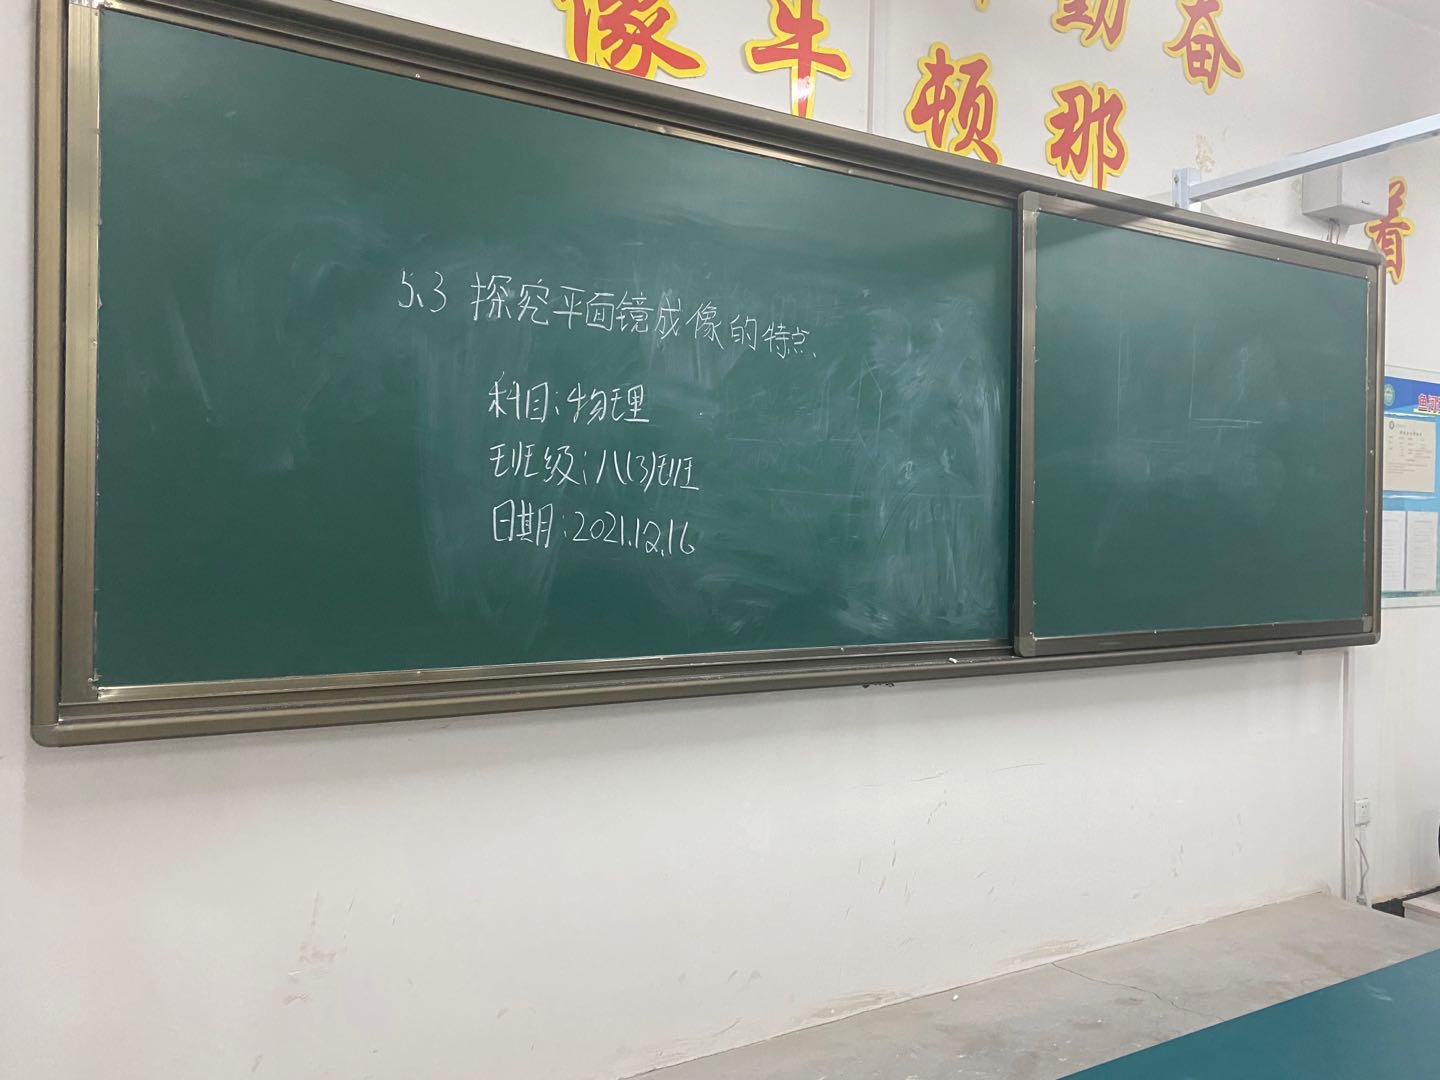 像牛顿那
勤奋
着
5.3 探究平面镜成像的特点
科目:物理
班级:八(3)班
日期:2021.12.16